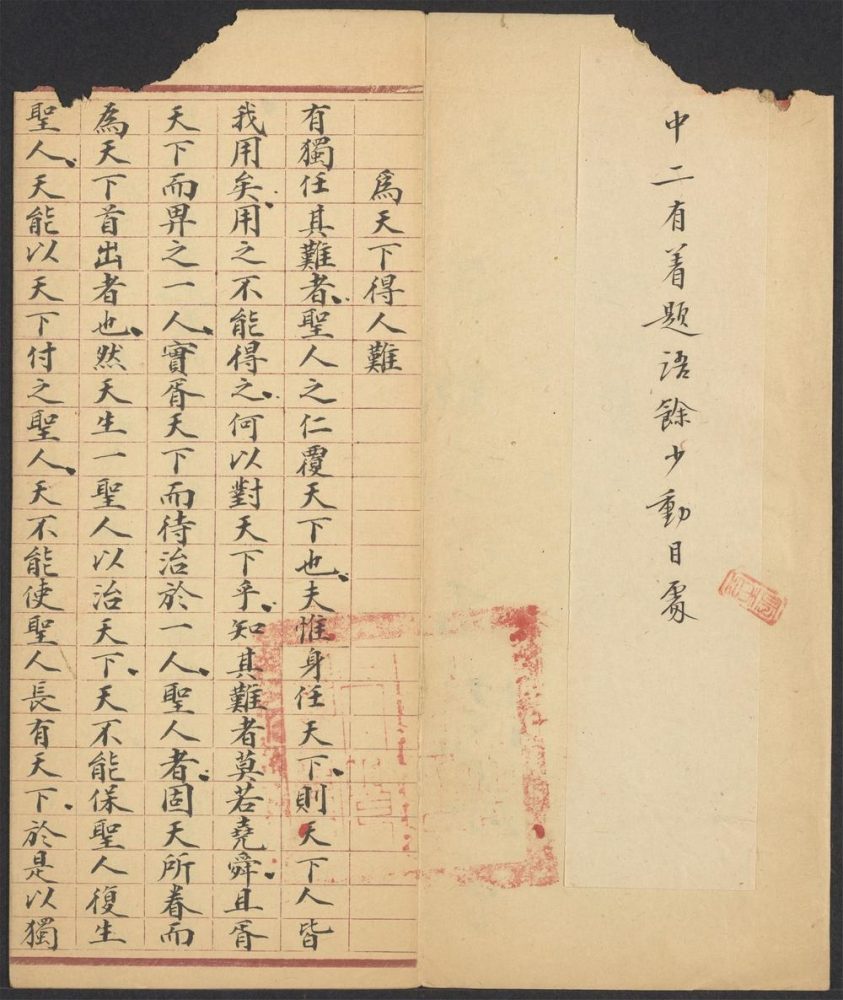 中二有着題語餘少動目處
為天下得人難
有獨任其難者聖人之仁覆天下也夫惟身任天下則天下人皆
我用矣用之不能得之何以對天下乎知其難者莫若堯舜且胥
天下而畀之一人實胥天下而待治於一人聖人者固天所眷而
為天下首出者也然天生一聖人以治天下天不能保聖人復生
聖人天能以天下付之聖人天不能使聖人長有天下於是以獨